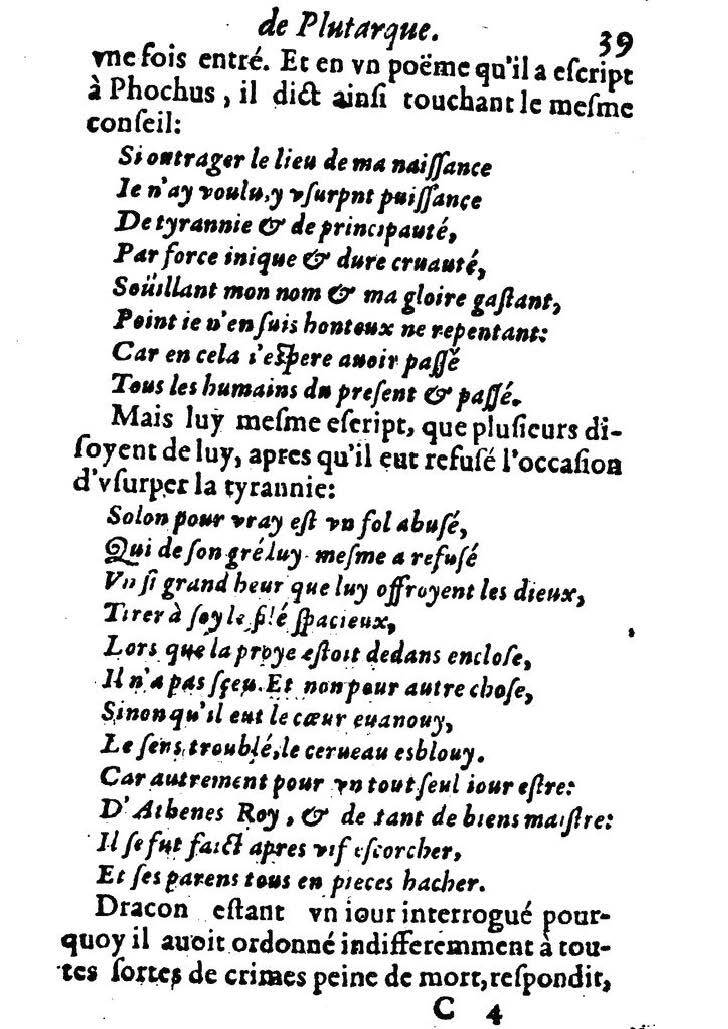 de Plutarque. 39
vne fois entré. Et en vn poëme qu'il a eſcript
à Phochus, il dict ainſi touchant le meſme
conſeil:
Si outrager le lieu de ma naiſſance
Ie n'ay voulu, y vſurpnt puiſſance
De tyrannie & de principauté,
Par force inique & dure cruauté,
Soüillant mon nom & ma gloire gaſtant,
Point ie n'en ſuis honteux ne repentant:
Car en cela i'eſpere auoir paſſé
Tous les humains du preſent & paſſé.
Mais luy meſme eſcript, que pluſieurs di-
ſoyent de luy, apres qu'il eut refuſé l'occaſion
d'vſurper la tyrannie:
Solon pour vray eſt vn fol abuſé,
Qui de ſon gré luy meſme a refuſé
Vn ſi grand heur que luy offroyent les dieux,
Tirer à ſoy le filé ſpacieux,
Lors que la proye eſtoit dedans encloſe,
Il n'a pas ſçeu. Et non pour autre choſe,
Sinon qu'il eut le cœur euanouy,
Le ſens troublé, le cerueau esblouy.
Car autrement pour vn tout ſeul iour eſtre:
D'Athenes Roy, & de tant de biens maiſtre:
Il ſe fut faict apres vif eſcorcher,
Et ſes parens tous en pieces hacher.
Dracon eſtant vn iour interrogué pour-
quoy il auoit ordonné indifferemment à tou-
tes ſortes de crimes peine de mort, reſpondit,
C 4